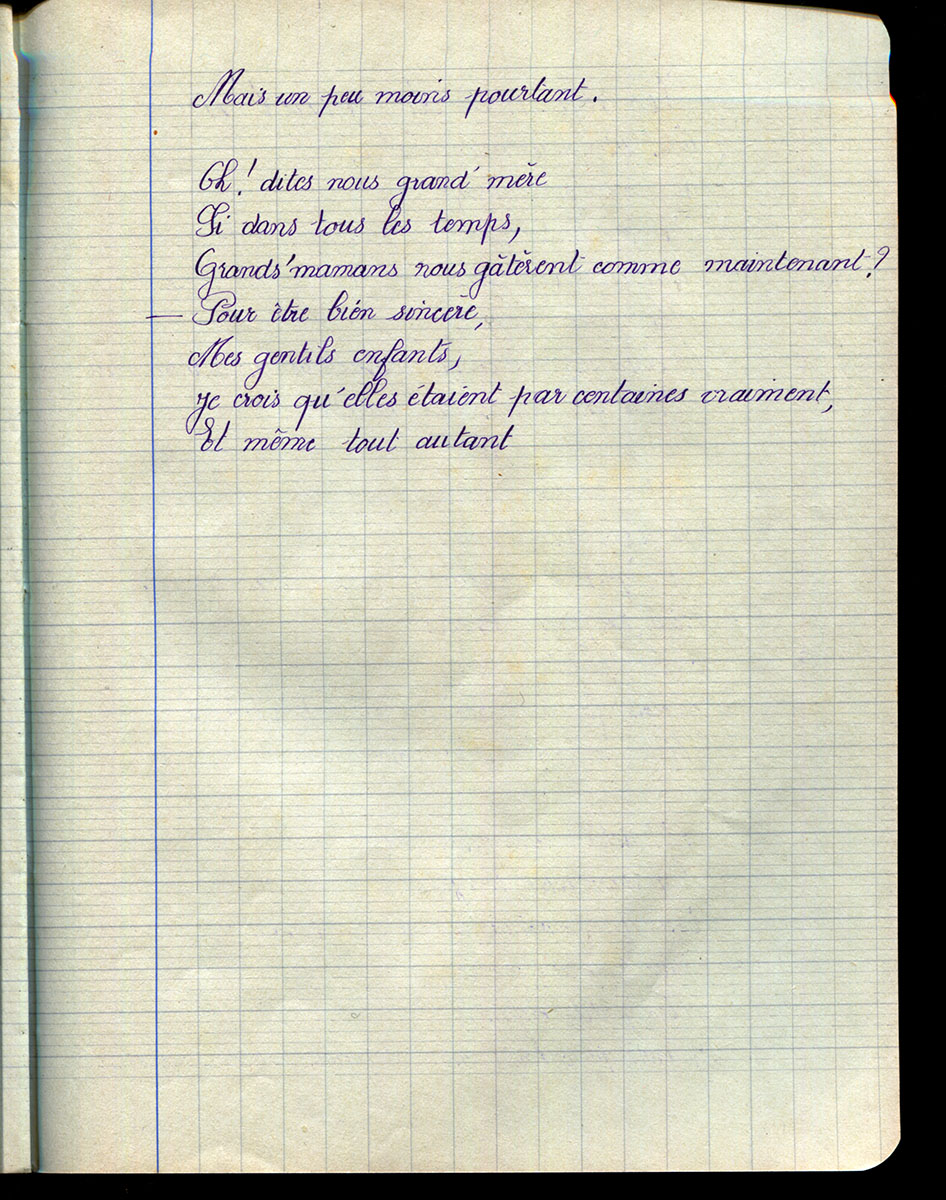 Mais un peu moins pourtant.
Oh! dites nous grand' mère
Si dans tous les temps,
Grands'mamans nous gâtèrent comme maintenant?
— Pour être bien sincère,
Mes gentils enfants,
Je crois qu'elles étaient par centaines vraiment,
Et même tout autant